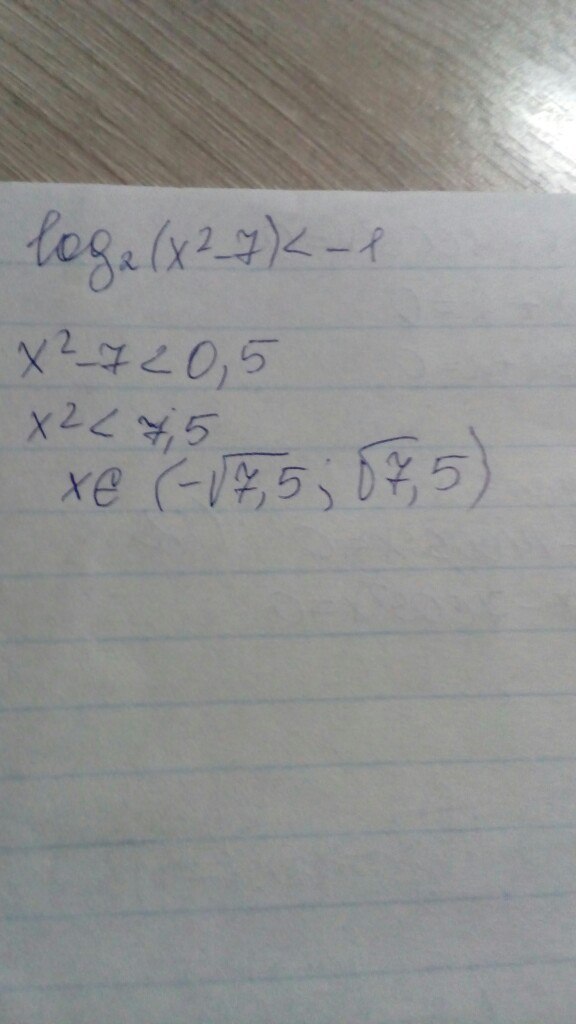 log₂(x²-7)<-1
x²-7<0,5
x²<7,5
x∈(-√7,5; √7,5)